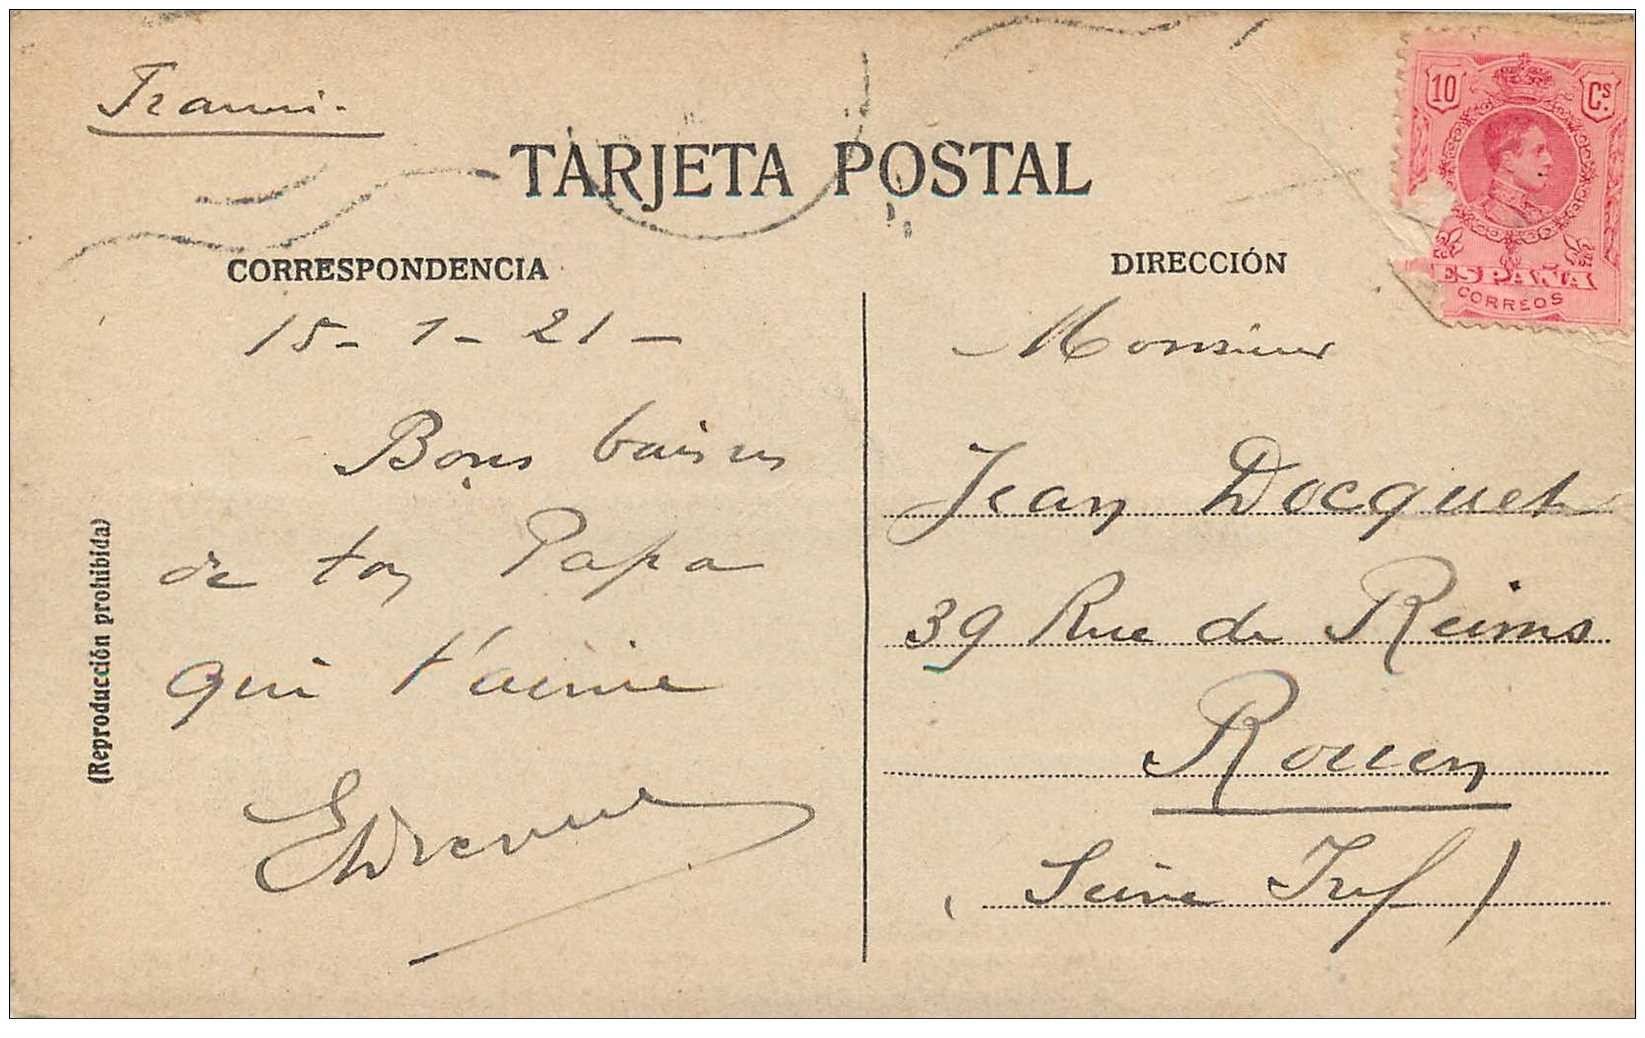 France.
TARJETA POSTAL
10 Cs.
ESPAÑA
CORREOS
CORRESPONDENCIA
15-1-21-
Bons baisers
de ton Papa
qui t'aime
(Reproducción prohibida)
DIRECCIÓN
Monsieur
Jean Docquet
39 Rue de Reims
Rouen
(Seine Inf)